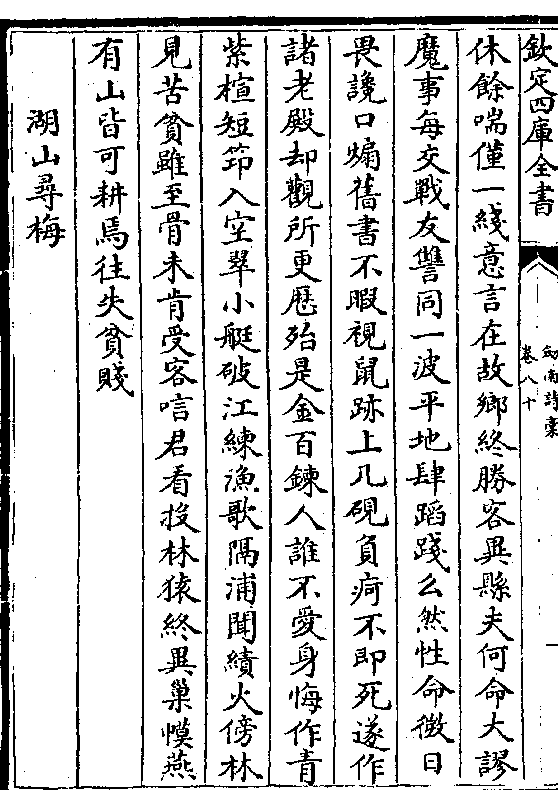 欽定四庫全書
劒南詩稾
卷八十
休餘喘僅一綫意言在故鄉終勝客異縣夫何命大謬
魔事每交戰友讐同一波平地肆蹈踐么然性命微日
畏讒口煽舊書不暇視鼠跡上几硯負疴不即死遂作
諸老殿却觀所更歷殆是金百鍊人誰不愛身悔作青
紫楦短笻入空翠小艇破江練漁歌隔浦聞績火傍林
見苦貧雖至骨未肯受客唁君看投林猿終異巢幙燕
有山皆可耕焉往失貧賤
湖山尋梅